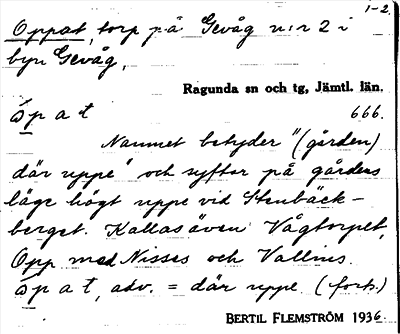 1-2.
Oppat, torp på Gevåg n:r 2 i
byn Gevåg,
Ragunda sn och tg, Jämtl. län.
ɷ́p a t 666.
Namnet betyder "(gården)
där uppe" och syftar på gårdens
läge högt uppe vid Stenbäck-
berget. Kallas även Vågtorpet,
Opp med Nisses och Vallins.
ɷ́p a t, adv. = där uppe. (forts.)
BERTIL FLEMSTRÖM 1936.